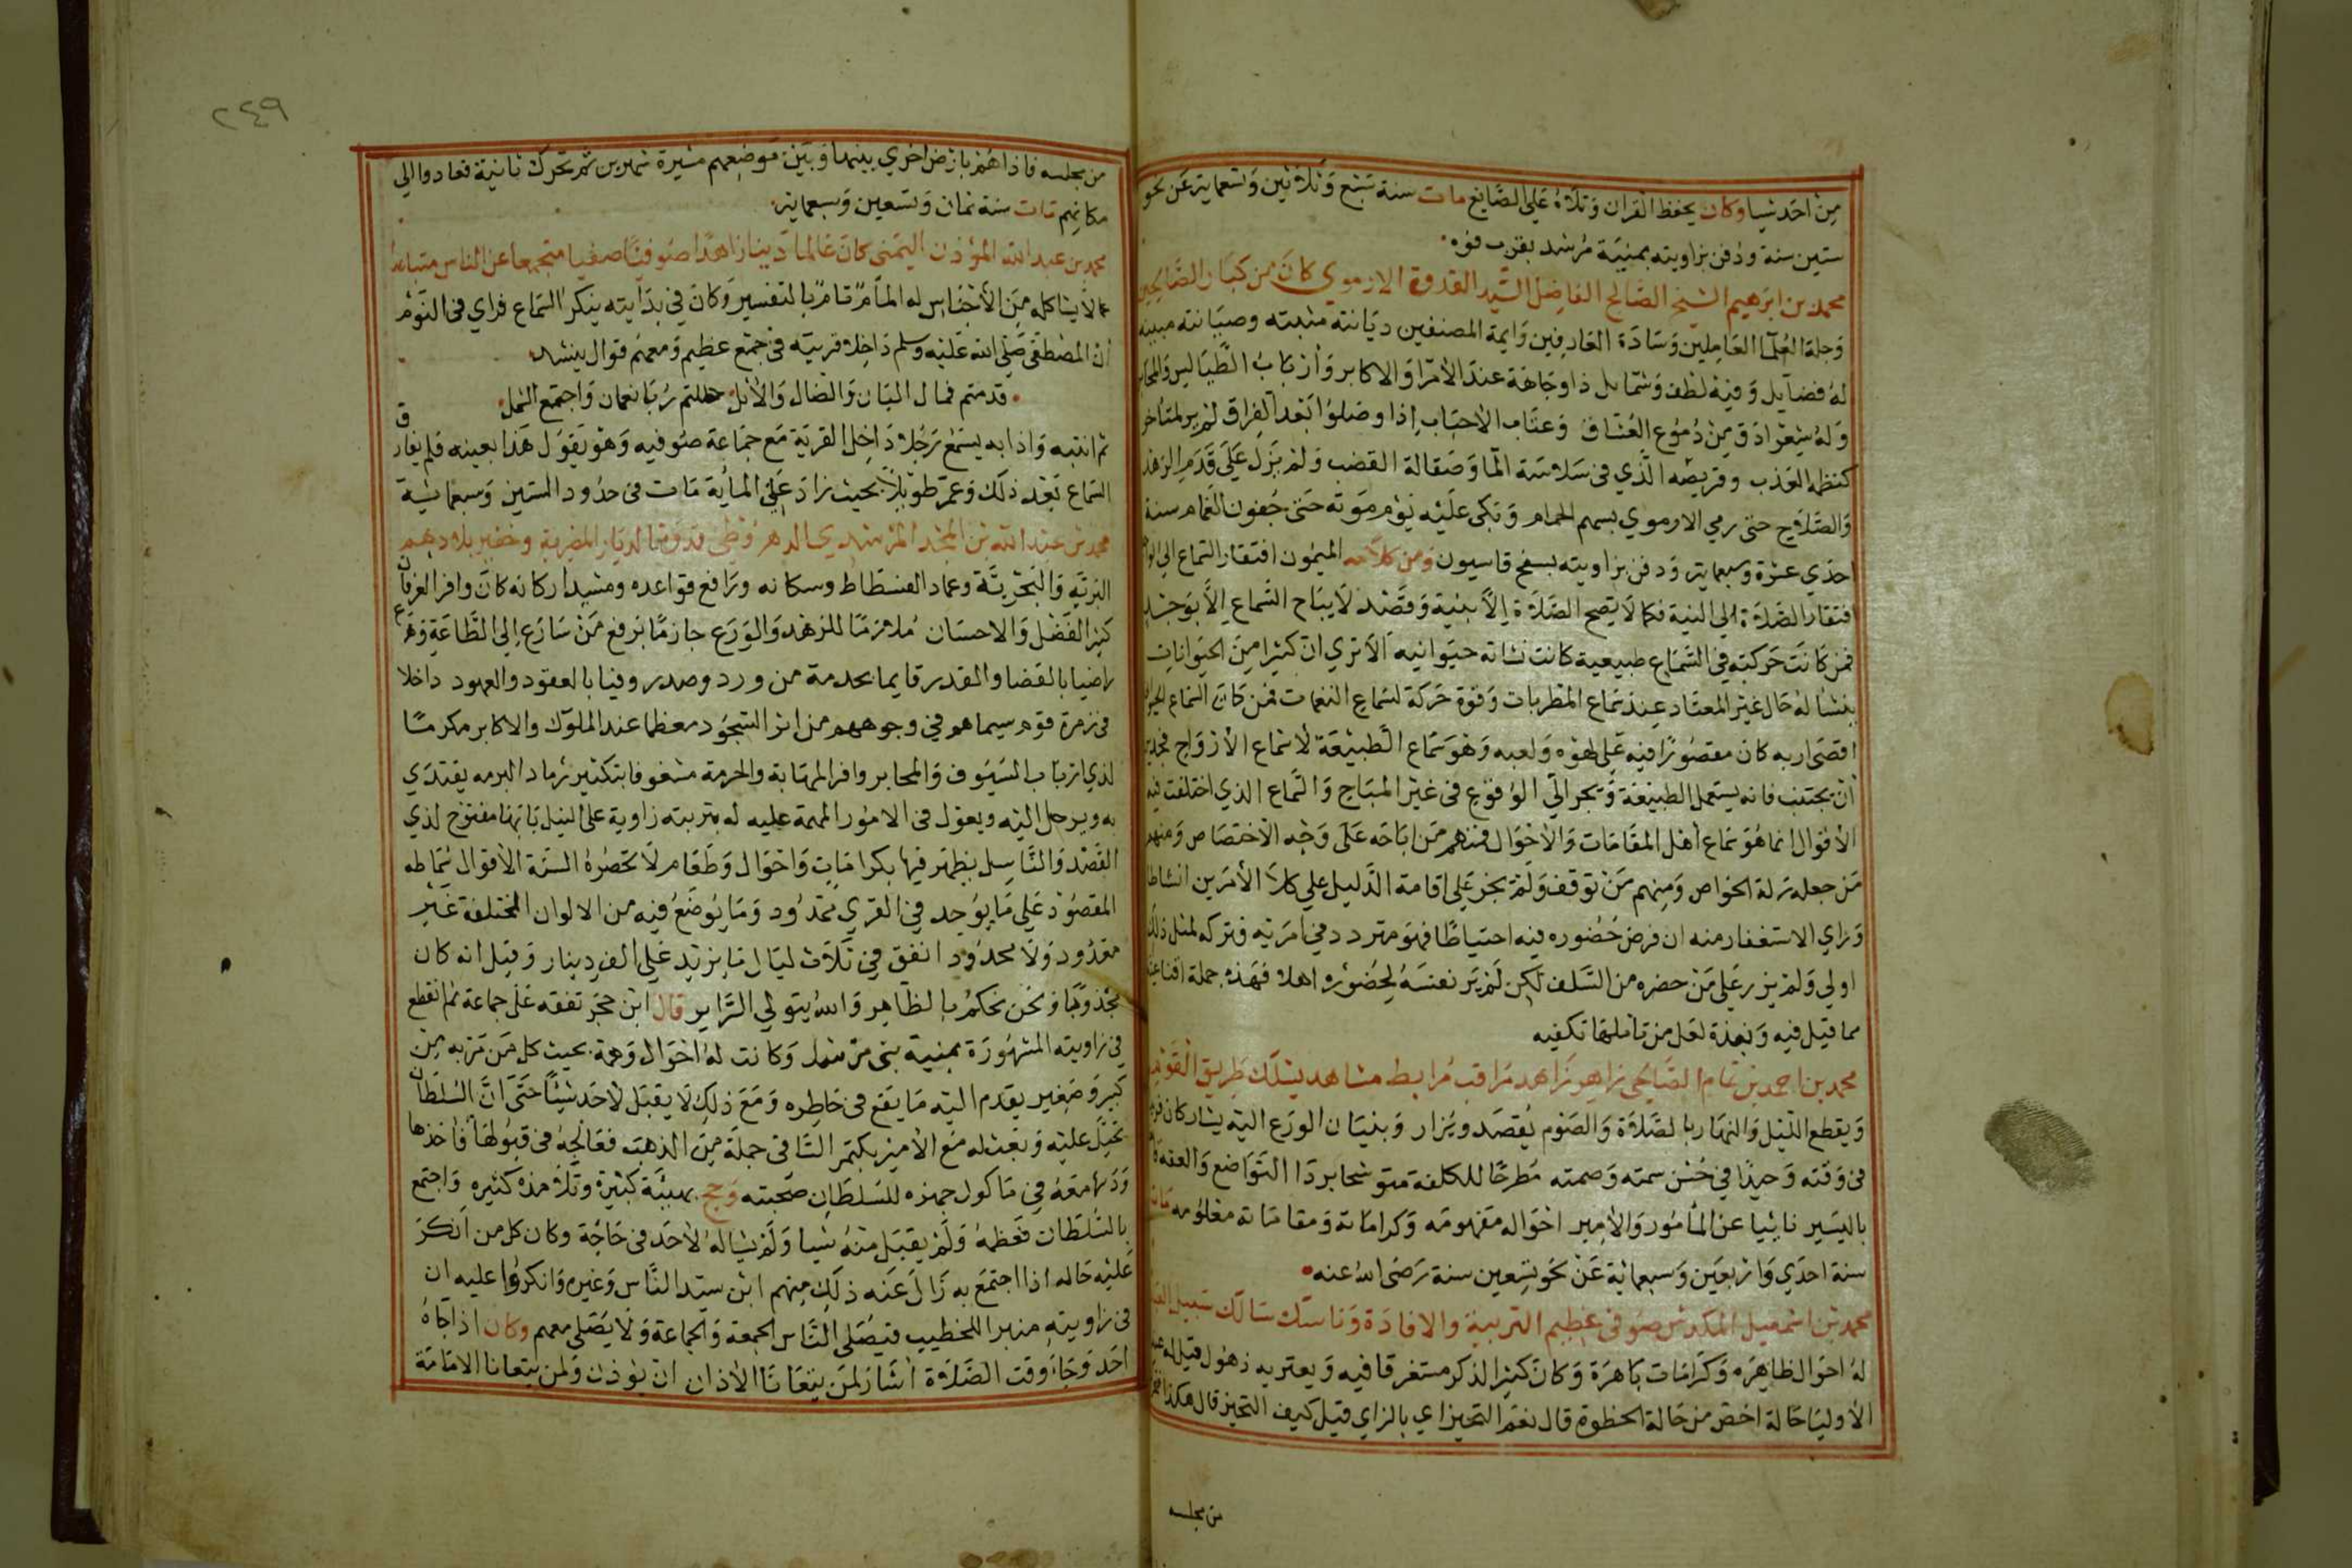 من احد شيا وكان يحفظ القران وتلاه على الصايغ مات سنة سبع وثلاثين وسبعماية عن نحو
ستين سنة ودفن بزاويته بمنية مرشد بقرب فوه
محمد بن ابرهيم الشيخ الصالح الفاضل السيد القدوة الارموي كان من كبار الصالحين
وجلة العلما العاملين وسادة العارفين وايمة المصنفين ديانته مثبته وصيانته مبينه
له فضايل وفيه لطف وشمايل ذا وجاهة عند الامرا والاكابر وارباب الطيالس والمحابر
وله شعر ادق من دموع العشاق وعتاب الاحباب اذا وصلوا بعد الفراق لم ير لمتاخر
كنظمه العذب وقريضه الذي في سلاسة الما وصقالة القضب ولم يزل على قدم الزهد
والصلاح حتى رمي الارموي بسهم الحمام وبكى عليه يوم موته حتى جفون الغمام سنة
احدي عشرة وسبعماية ودفن بزاويته بسفح قاسيون ومن كلامه الميمون افتقار السماع الى الوجد
فتقار الصلاة الى النية فكما لا يصح الصلاة الا بنية وقصد لا يباح السماع الا بوجد
فمن كانت حركته في السماع طبيعية كانت نشاته حيوانيه الا تري ان كثيرا من الحيوانات
ينشا له حال غير المعتاد عند سماع المطربات وقوة حركة لسماع النغمات فمن كان السماع
اقصى اربه كان مقصورا فيه على لهوه ولعبه وهو سماع الطبيعة لا سماع الارواح فيجب
ان يجتنب فانه يستعمل الطبيعة ويجر الى الوقوع في غير المباح والسماع الذي اختلفت فيه
الاقوال انما هو سماع اهل المقامات والاحوال فمنهم من اباحه على وجه الاختصاص ومنهم
من جعله زلة الخواص ومنهم من توقف ولم يجز على اقامة الدليل على كلا الأمرين انشاطا
وراي الاستغفار منه ان فرض حضوره فيه احتياطا فهو متردد في امريه فتركه لمثل ذلك
اولي ولم يزر على من حضره من السلف لكن لم ير نفسه لحضوره اهلا فهذه جملة
مما قيل فيه ونبذة لعل من تاملها تكفيه
محمد بن احمد بن تمام الصالحي زاهر زاهد مراقب مرابط مشاهد يسلك طريق القوم
ويقطع الليل والنهار بالصلاة والصوم يقصد ويزار وبنيان الورع اليه يشار كان
في وقته وحيدا في حسن سمته وصمته مطرحا للكلفة متوشحا بردا التواضع والعفة
باليسير نائيا عن المامور والامير احواله مفهومه وكراماته ومقاماته معلومه مات
سنة احدي واربعين وسبعمائة عن نحو تسعين سنة رضى الله عنه
محمد بن اسمعيل المكدش صوفي عظيم التربية والافادة وناسك سالك سبيل
له احوال ظاهره وكرامات باهرة وكان كثير الذكر مستغرقا فيه ويعتريه ذهول قيل له
الأوليا حالة اخص من حالة الخطوة قال نعم التحيز اي بالزاي قيل كيف التحيز قال هكذا
من مجلسه
٢٤٩
من مجلسه فاذا هم بارض اخري بينها وبين موضعهم مسيرة شهرين ثم تحرك ثانية فعادوا الى
مكانهم مات سنة ثمان وتسعين وسبعماية
محمد بن عبد الله المؤذن اليمنى كان عالما دينا زاهدا صوفيا صفيا متجمعا عن الناس متباعدا
عما لا يشاكله من الأجناس له المام تام بالتفسير وكان في بدايته ينكر السماع فراي في النوم
ان المصطفى صلى الله عليه وسلم داخلا قريته في جمع عظيم ومعهم قوال ينشد
قدمتم فمال البان والضال والاثل حللتم ربا نعمان واجتمع الشمل
ثم انتبه واذا به يسمع رجلا داخل القرية مع جماعة صوفيه وهو يقول هذا بعينه فلم يفارق
السماع بعد ذلك وعمر طويلا بحيث زاد على المأية مات في حدود الستين وسبعمائية
محمد بن عبد الله بن المجد المرشدي الدهروطي قدوتنا لديار المصرية وخفير بلادهم
البرية والبحرية وعماد الفسطاط وسكانه ورافع قواعده ومشيد اركانه كان وافر العرفان
كثير الفضل والاحسان ملازما للزهد والورع جازما برفع من سارع الى الطاعة وهرع
راضيا بالقضا والقدر قايما بخدمة من ورد وصدر وفيا بالعقود والعهود داخلا
في زمرة قوم سيماهم في وجوههم من اثر السجود معظما عند الملوك والاكابر مكرما
لذي ارباب السيوف والمحابر وافر المهابة والحرمة مشغوفا بتكثير رماد البرمه يقتدي
به ويرحل اليه ويعول في الامور المهمة عليه له بتربته زاوية على النيل بابها مفتوح لذي
القصد والنا سيل يظهر فيها بكرامات واحوال وطعام لا تحصره السنة الاقوال سماطه
المقصود على ما يوجد في القري ممدود وما يوضع فيه من الالوان المختلفة غير
معدود ولا محدود انفق في ثلاث ليال ما يزيد على الف دينار وقيل انه كان
مخذوما ونحن نحكم بالظاهر والله يتولي السراير قال ابن حجر تفقه على جماعة ثم انقطع
في زاويته المشهورة بمنية بنى مرشد وكانت له احوال وهمة بحيث كل من مر به من
كبير وصغير يقدم اليه ما يقع في خاطره ومع ذلك لا يقبل لاحد شيئا حتى ان السلطان
تحيل عليه وبعث له مع الامير بكتمر الساقى جملة من الذهب فعالجه في قبولها فاخذها
ودسها معه في ماكول جهزه للسلطان صحبته وحج بهيئة كبيرة وتلامذة كثيره واجتمع
بالسلطان فعظمه ولم يقبل منه شيا ولم يساله لاحد في حاجة وكان كل من انكر
عليه حاله اذا اجتمع به زال عنه ذلك منهم ابن سيد الناس وغيره وانكروا عليه ان
في زاويته منبرا للخطيب فيصلى الناس الجمعة والجماعة ولا يصلى معهم وكان اذا جاه
احد وجاء وقت الصلاة اشار لمن يتعانا الاذان ان يوذن ولمن يتعانا الامامة